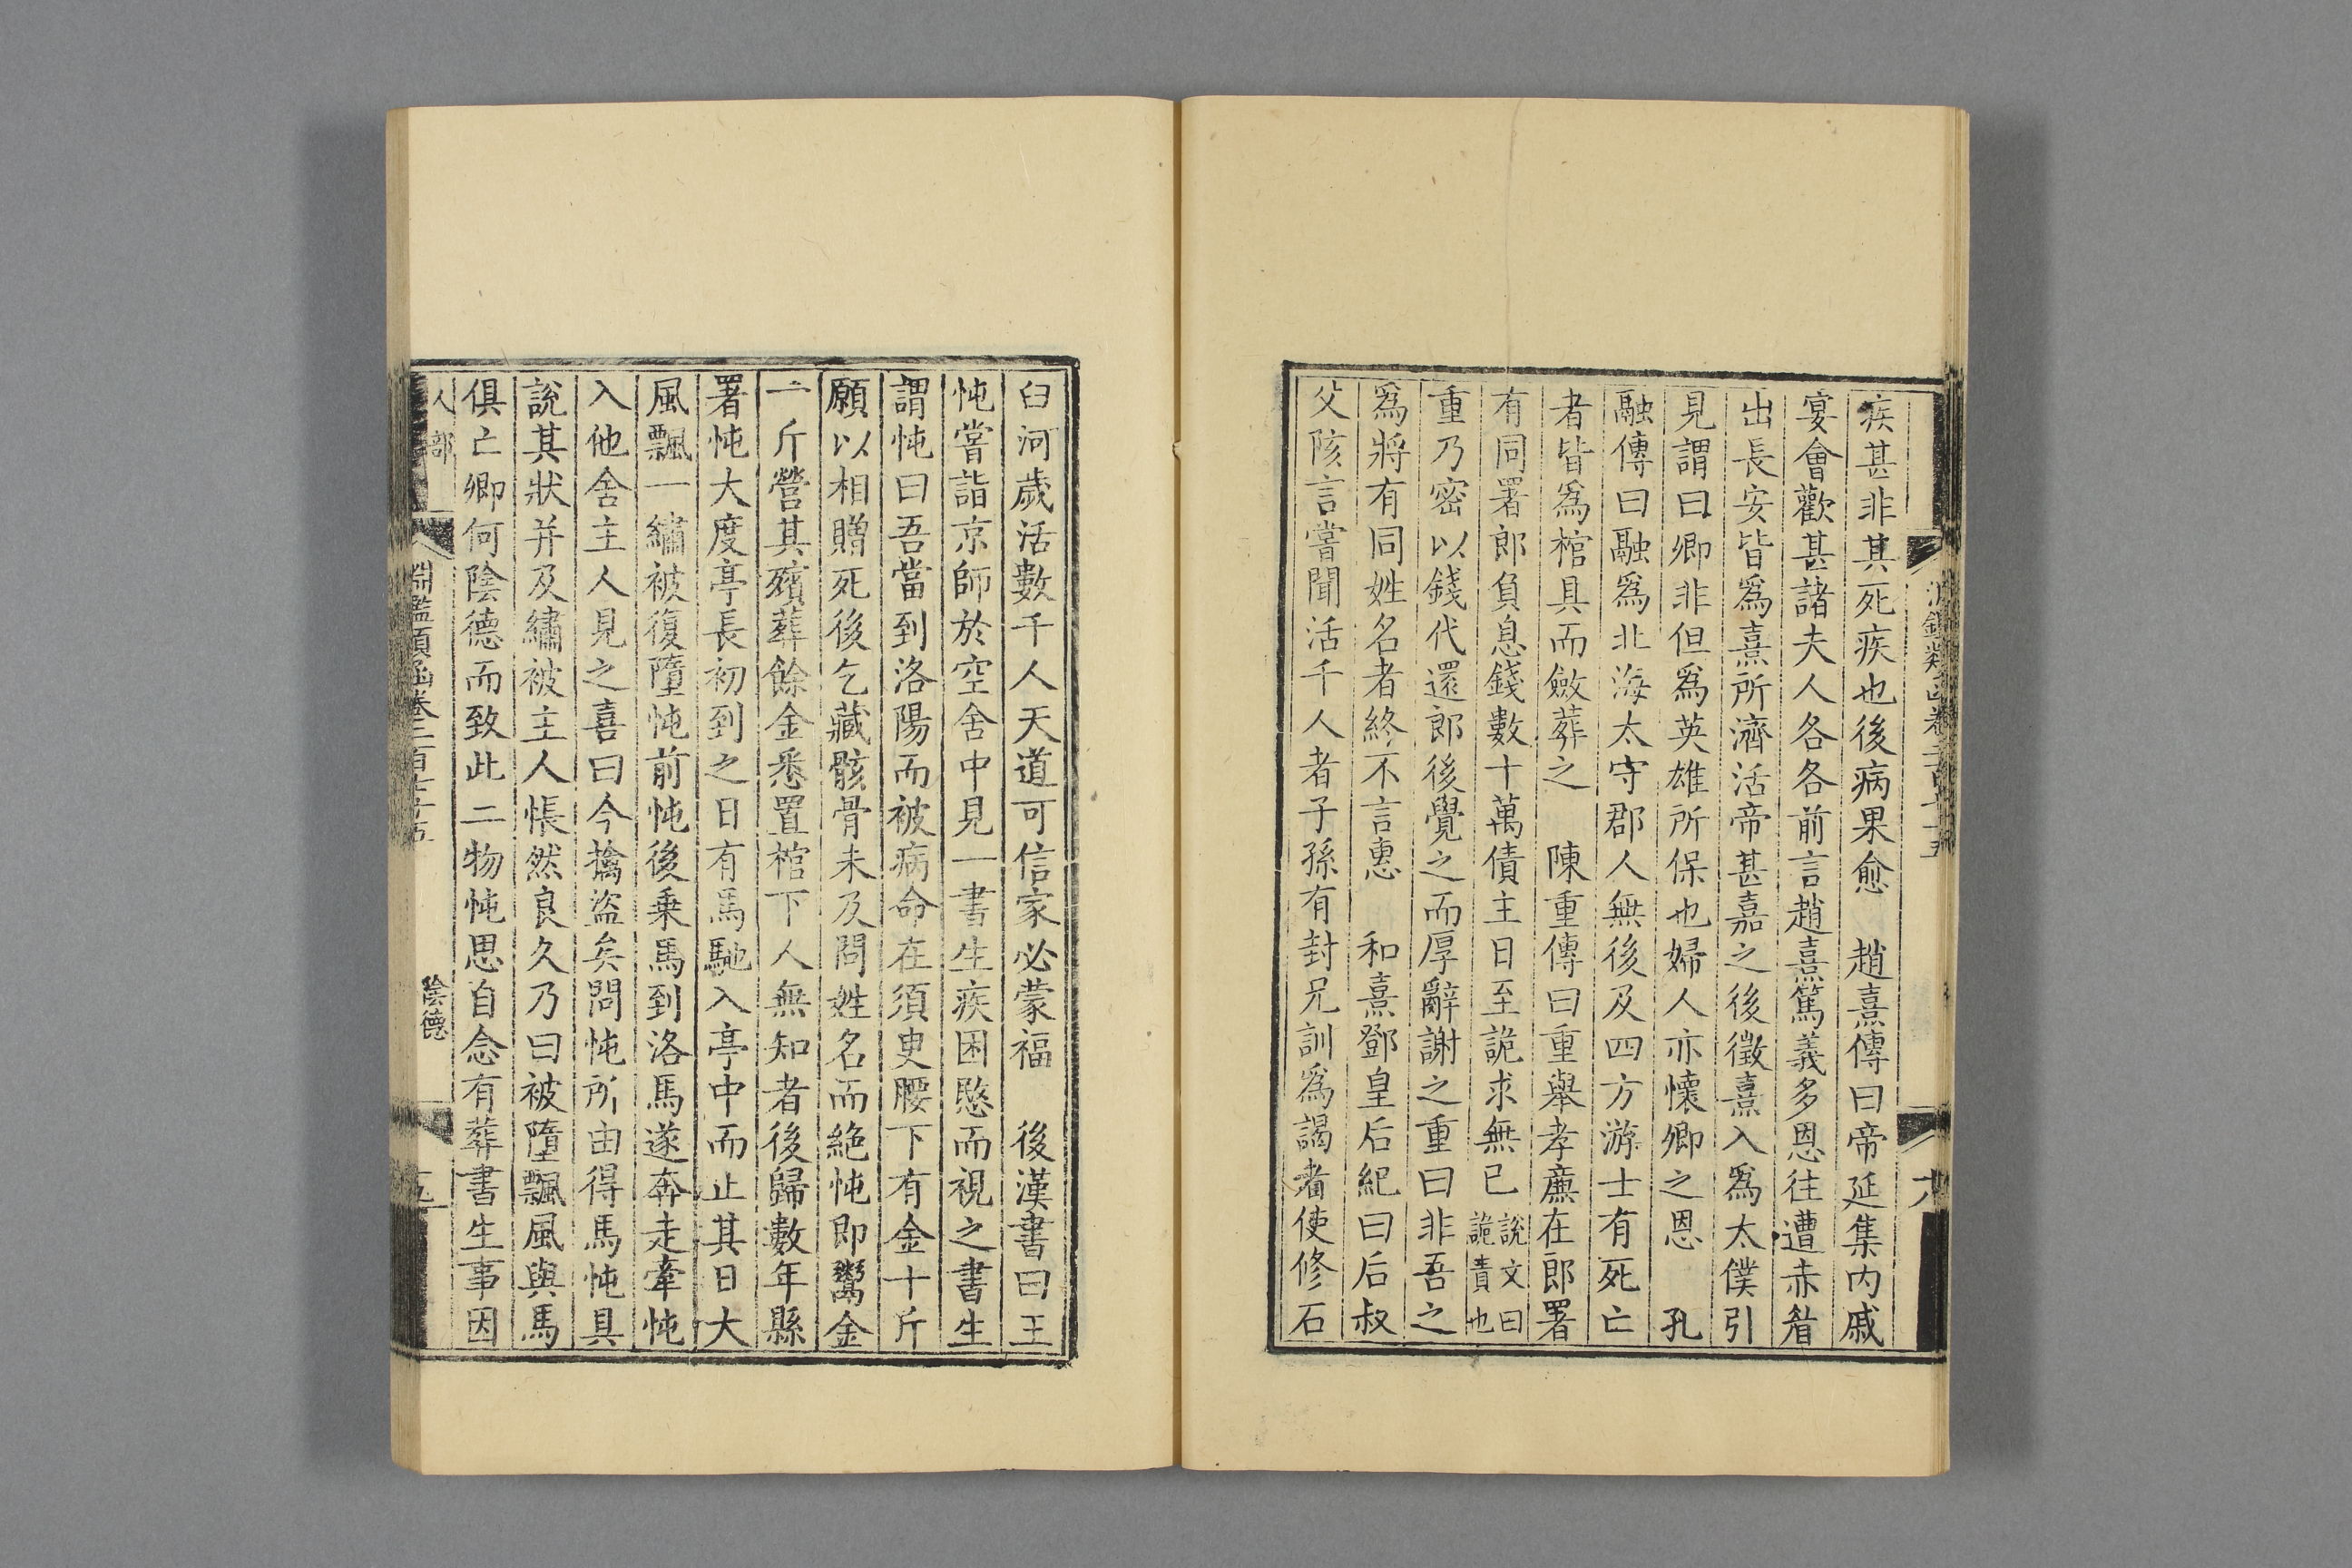 疾甚非其死疾也後病果愈　趙熹傳曰帝延集内戚
宴會歡甚諸夫人各各前言趙熹篤義多恩往遭赤眉
出長安皆爲熹所濟活帝甚嘉之後徵熹入爲太僕引
見謂曰卿非但爲英雄所保也婦人亦懷卿之恩　孔
融傳曰融爲北海太守郡人無後及四方游士有死亡
者皆爲棺具而斂葬之　陳重傳曰重舉孝廉在郎署
有同署郎負息錢數十萬債主日至詭求無已說文曰詭責也
重乃密以錢代還郎後覺之而厚辭謝之重曰非吾之
爲將有同姓名者終不言惠　和熹鄧皇后紀曰后叔
父陔言嘗聞活千人者子孫有封兄訓爲謁者使修石
臼河歲活數千人天道可信家必蒙福　後漢書曰王
忳嘗詣京師於空舍中見一書生疾困愍而視之書生
謂忳曰吾當到洛陽而被病命在須臾腰下有金十斤
願以相贈死後乞藏骸骨未及問姓名而絶忳即鬻金
一斤營其殯葬餘金悉置棺下人無知者後歸數年縣
署忳大度亭長初到之日有馬馳入亭中而止其日大
風飄一繡被復墮忳前忳後乗馬到洛馬遂奔走牽忳
入他舍主人見之喜曰今擒盜矣問忳所由得馬忳具
說其狀并及繡被主人悵然良久乃曰被墮飄風與馬
俱亡卿何陰德而致此二物忳思自念有葬書生事因
人部　淵鑑類函卷二百七十五　陰德